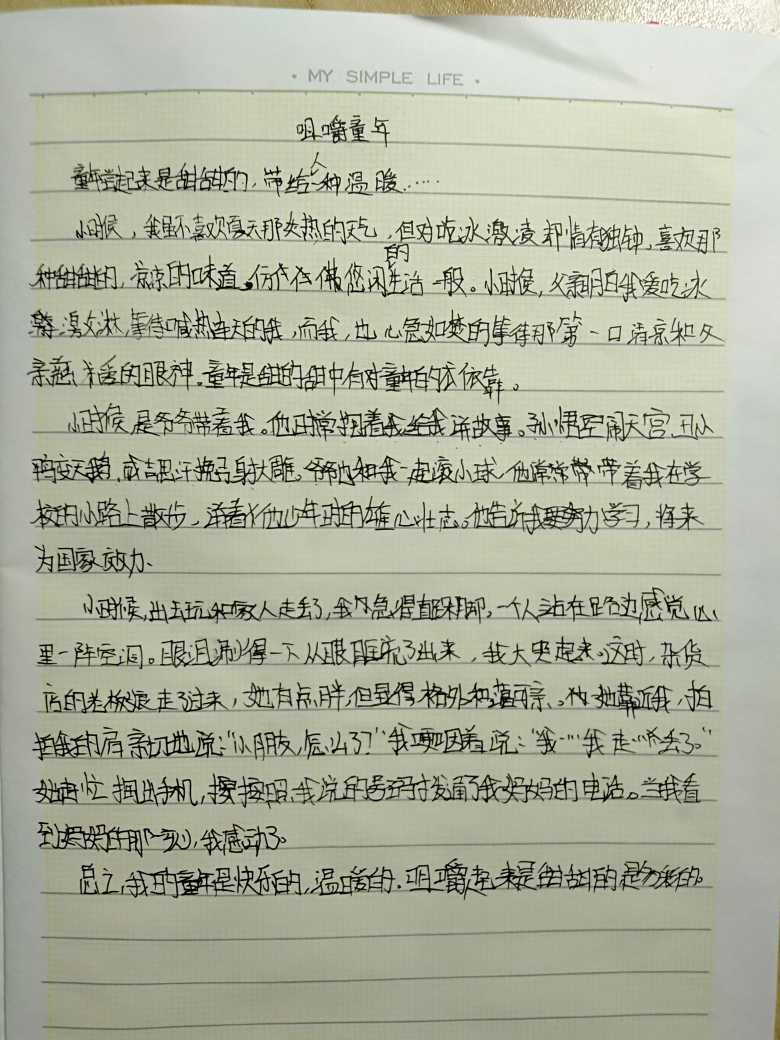 · MY SIMPLE LIFE ·
咀嚼童年
童年尝起来是甜甜的，带给人一种温暖……
小时候，我里不喜欢夏天那炎热的天气，但对吃冰激凌却情有独钟，喜欢那
种甜甜的，凉凉的味道。仿佛悠闲的生活一般。小时候，父亲明白我爱吃冰
激凌，等待喊热连天的我，而我，也心急如焚的等待那第一口清凉和父
亲慈爱的眼神。童年是甜的甜中有对童年的依靠。
小时候是爷爷带着我。他时常抱着我给我讲故事。孙悟空闹天宫，丑小
鸭变天鹅，成吉思汗挽弓射大雕。爷爷也和我一起滚小球，他常常带着我在学
校的小路上散步，讲着他少年时的雄心壮志。他告诉我要努力学习，将来
为国家效力。
小时候，出去玩和家人走丢了，我急得直跺脚，一个人站在路边感觉心
里一阵空洞。眼泪刷得一下从眼眶流了出来，我大哭起来。这时，杂货
店的老板娘走了过来，她有点胖，但显得格外和蔼可亲。她靠近我，拍
拍我的肩亲切地说："小朋友，怎么了？"我哽咽着说："我……我走……丢了。"
她连忙掏出手机，按照我说的号码拨通了我妈妈的电话。当我看
到妈妈的那一刻，我感动了。
总之，我的童年是快乐的，温暖的，咀嚼起来是甜甜的